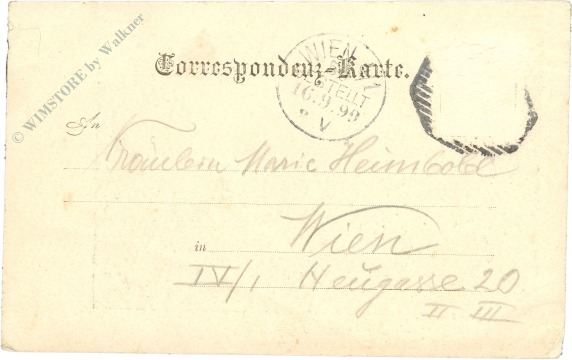 © WIMSTORE by Walkner
Correspondenz-Karte.
WIEN
BESTELLT
16.9.99
8 V
An
Fräulein Marie Heimbold
in Wien
IV/1 Neugasse 20
II III